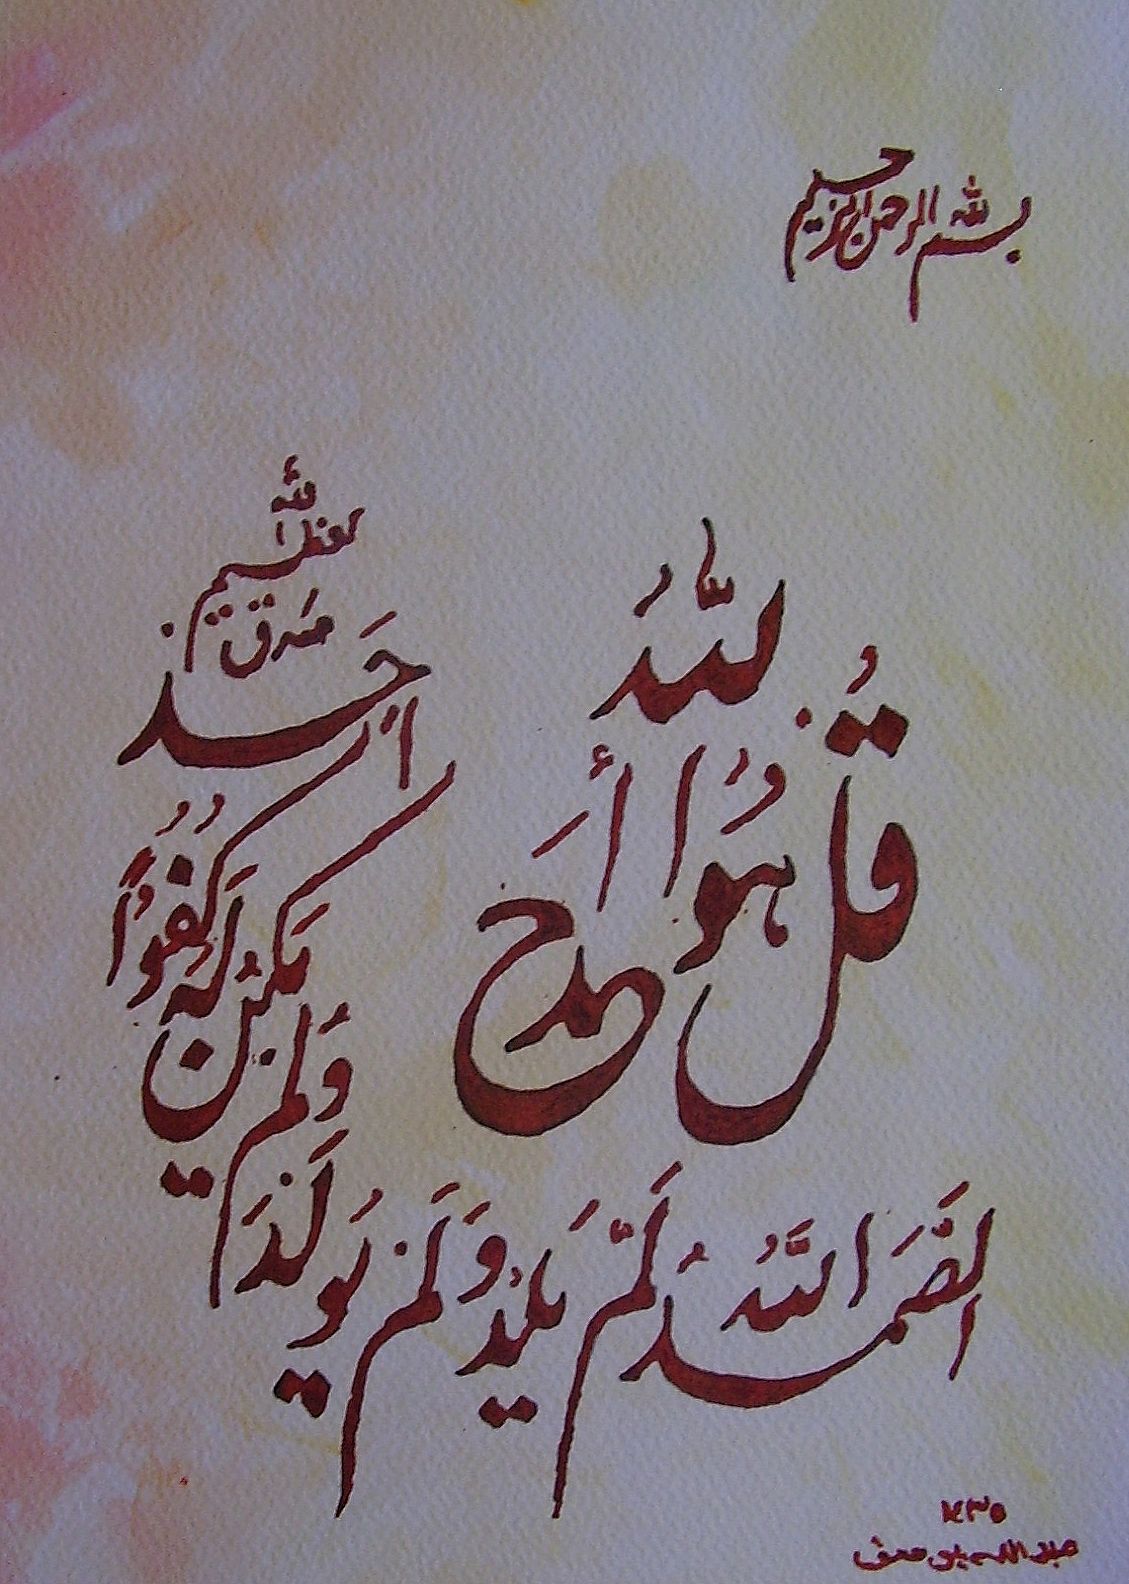 بسم الله الرحمن الرحيم
قُل هُوَ اللَّهُ أَحَد
اللَّهُ الصَّمَدُ لَم يَلِد وَلَم يُولَد
وَلَم يَكُن لَهُ كُفُوًا أَحَد
صدق الله العظيم
١٤٣٥
عبدالله